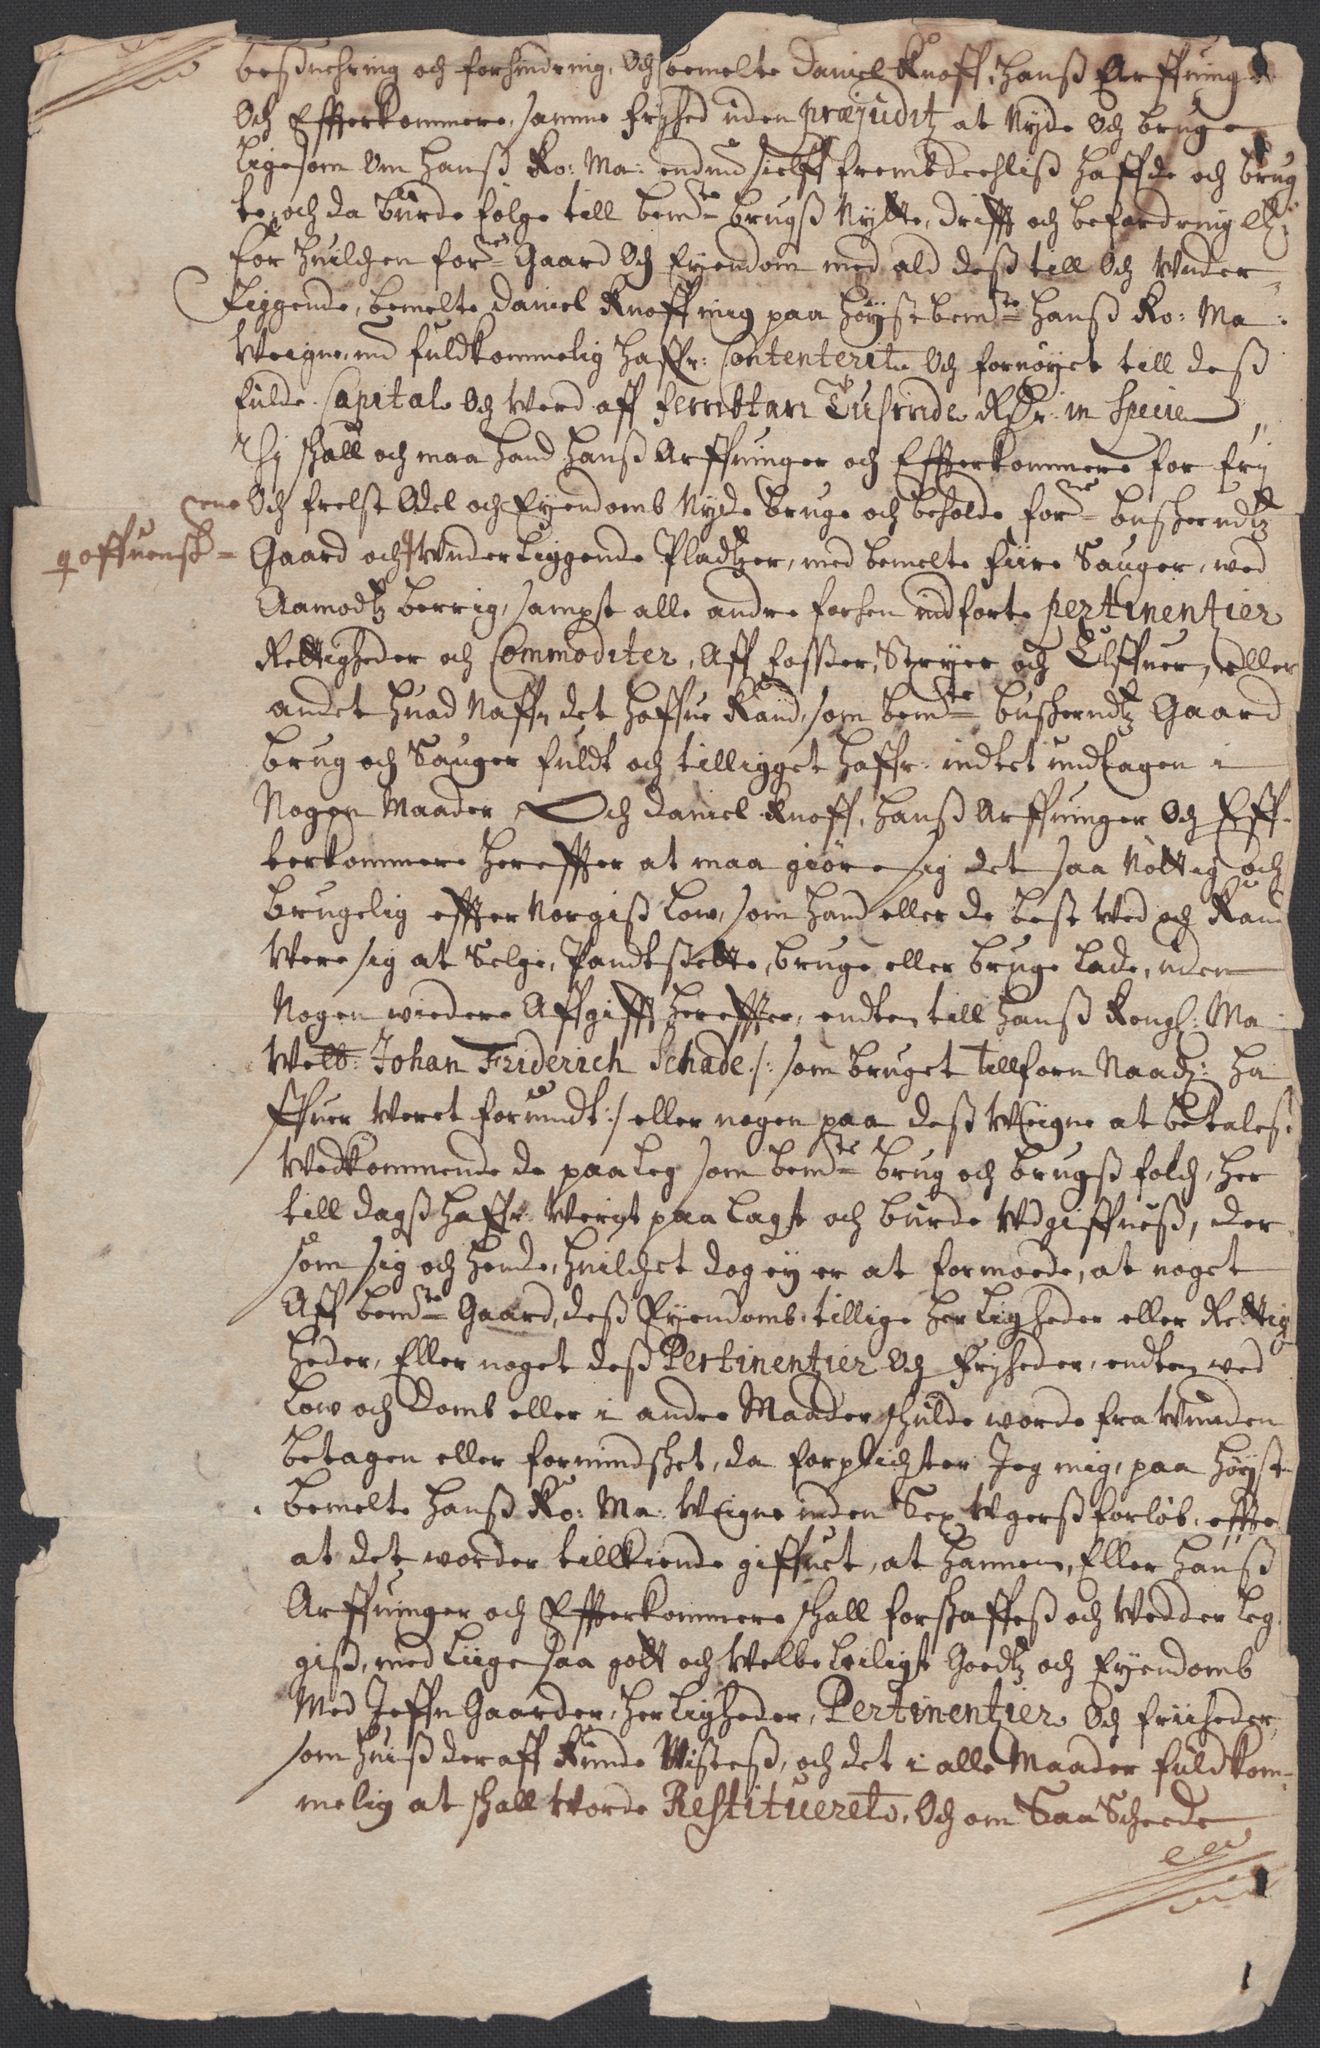 beßuehring och forhindring, Och bemelte Daniel Knoff, hanß Arffuing
Och Effterkommere, samme frÿhed uden præjuditz at Nyde Och bruge
Ligesom Om hanß Ko: Ma: endnu sielff frembdeeliß haffde och brug
te, och da burde følge till bemte brugß Nytte, drifft och befordring etc:
for huilchen forne Gaard Och Eyendom med ald deß till Och Vnder
Liggende, bemelte Daniel Knoff mig paa høystbemte hanß Ko: Ma:
Weigne, nu fuldkommelig haffr: Contenterit Och fornøyet till deß
fulde Capital Och Werd aff fembtan Tusinde RDr. in Specie
Thj schall och maa hand hanß Arffuinger och Effterkommere for frj
Och frelst Odel och Eyendomb Nyde bruge och beholde forne buscherudtz
ene
q offuensk
Gaard och Vnderliggende Pladtzer, med bemelte fiire Sauger, wed
Aamodtz berrig, sampt alle andre forhen indførte pertinentier
Rettigheder och Commoditer, Aff foßer, Stryer och Elffuer, eller
andet huad Naffn det haffue Kand, som bemte buscherudtz Gaard
brug och Sauger fuldt och tilligget haffr. indtet undtagen i
Nogen Maader, Och Daniel Knoff, hanß Arffuinger Och Eff-
terkommere hereffter at maa giøre sig det saa Nøttig och
brugelig effter Norgiß Low, som hand eller de best Wed och Kand
Were sig at Selge, Pandtsette, bruge eller bruge Lade, uden
Nogen wiedere Affgifft hereffter, endten till hanß Kongl: Ma
Welb: Johan Friderich Schade /: som bruget tillforn Naadl: ha
ffuer Weret forundt :/ eller nogen paa deß Weigne at betales:
Wedkommende de paaLeg som bemte brug och brugß folch, her
till dagß haffr. Werit paa Lagt och burde Vdgiffueß, der
som sig och hende, huilchet dog ey er at formoede, at noget
Aff bemte Gaard, deß Eyendomb tillige herligheder eller Rettig
heder, Eller noget deß Pertinentier Och Frjheder, endten ved
Low och Domb eller i andre Maader schulde worde fraVunden
betagen eller formindschet, da forplichter Jeg mig, paa høyst-
bemelte hanß Ko: Ma: Weigne inden Sex Vgerß forløb, effter
at det worder tillkiende giffuet, at hannem, Eller hanß
Arffuinger och Effterkommere schall forschaffeß och Wedder Leg
giß, med Liige saa gott och Welbeleiligt Goedtz och Eyendomb
Med Jeffn Gaarder, herligheder, Pertinentier Och friiheder,
som huiß der aff Kunde Misteß, och det i alle Maader fuldkom-
melig at schall Worde Restituerets, Och om Saa Scheede